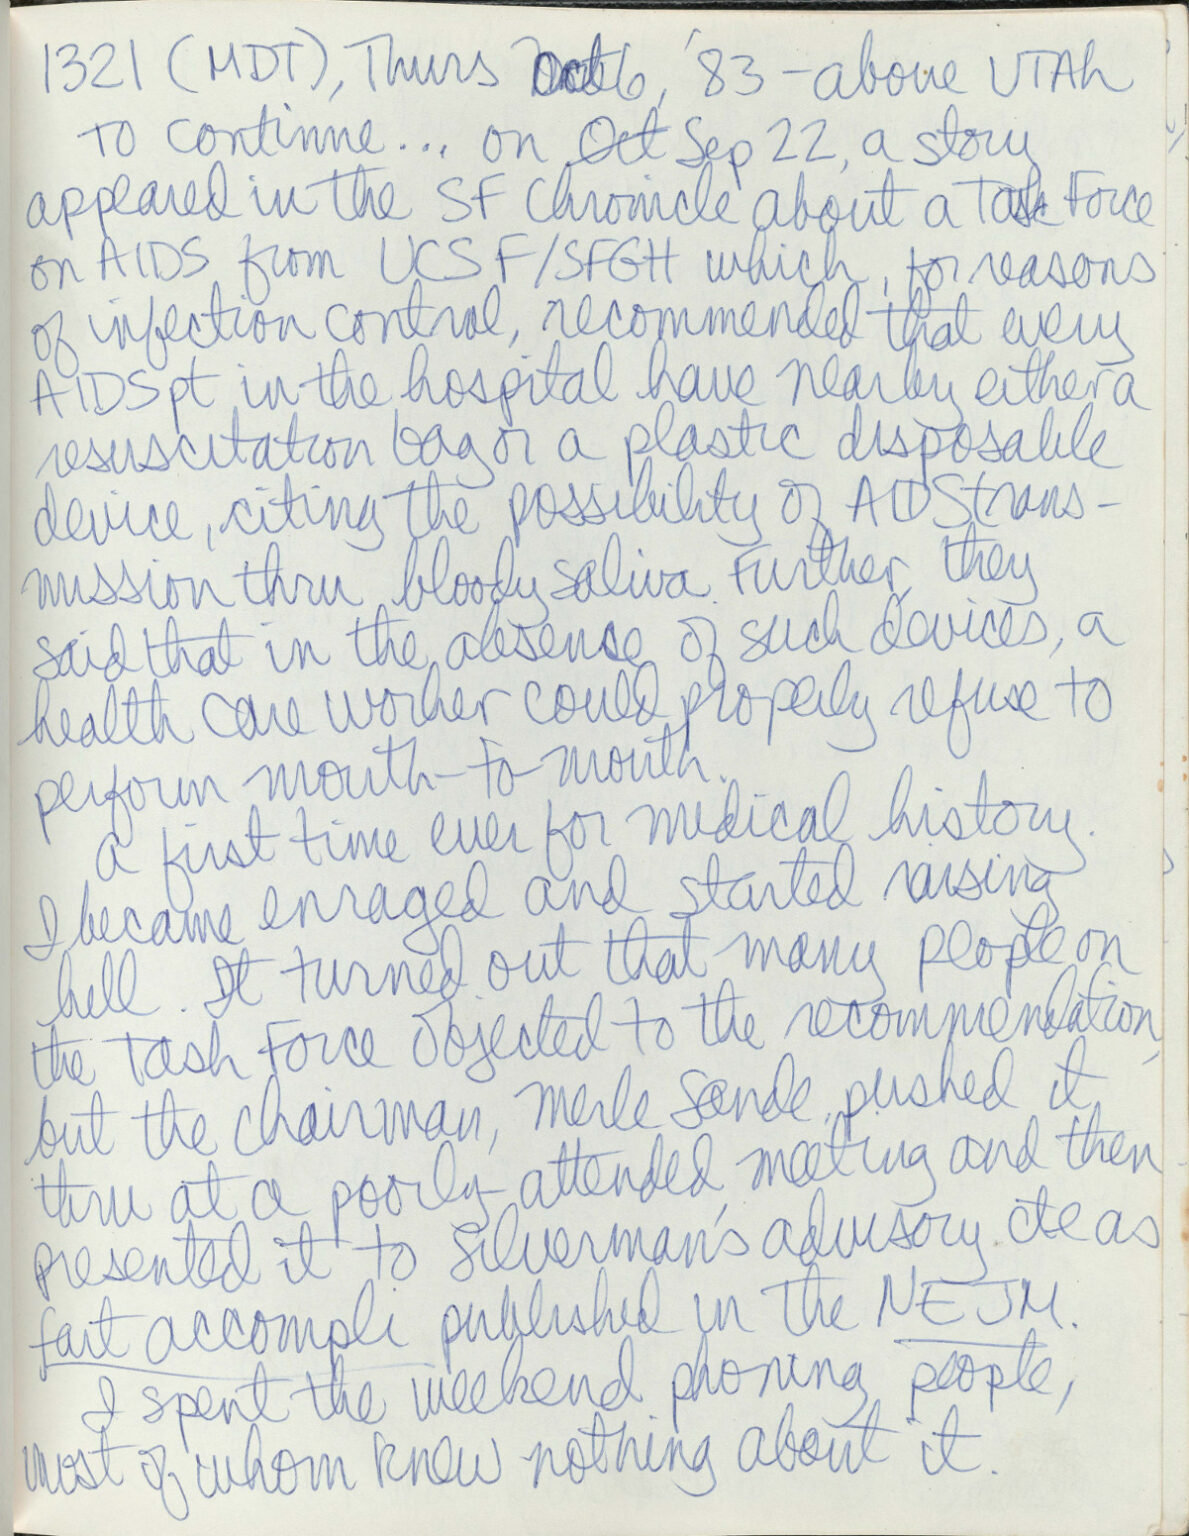 1321 (MDT), Thurs Oct 6, '83 – above UTAh
to continue... on Oct Sep 22, a story
appeared in the SF Chronicle about a Task Force
on AIDS from UCSF/SFGH which, for reasons
of infection control, recommended that every
AIDS pt in the hospital have nearby either a
resuscitation bag or a plastic disposable
device, citing the possibility of AIDS trans-
mission thru bloody saliva. Further, they
said that in the absence of such devices, a
health care worker could properly refuse to
perform mouth-to-mouth.
A first time ever for medical history.
I became enraged and started raising
hell. It turned out that many people on
the Task Force objected to the recommendation,
but the chairman, Merle Sande, pushed it
thru at a poorly-attended meeting and then
presented it to Silverman's advisory cte as
fait accompli published in the NEJM.
I spent the weekend phoning people,
most of whom knew nothing about it.